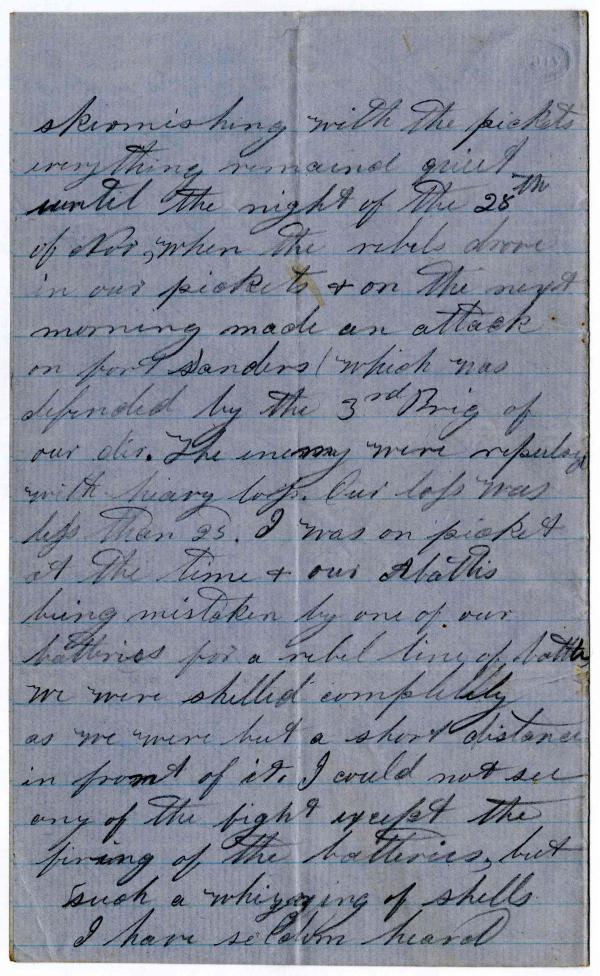 skirmishing with the pickets
everything remaind quiet
until the night of the 28th
of Nov, when the rebels drove
in our pickets & on the next
morning made an attack
on fort Sanders (which was
defended by the 3rd Brig of
our div. The enemy were repulsed
with heavy loss. Our loss was
less than 25. I was on picket
at the time & our Abattis
being mistaken by one of our
batteries for a rebel line of battle
we were shelled completely
as we were but a short distance
in front of it. I could not see
any of the fight except the
firing of the batteries, but
such a whizzing of shells
I have seldom heard